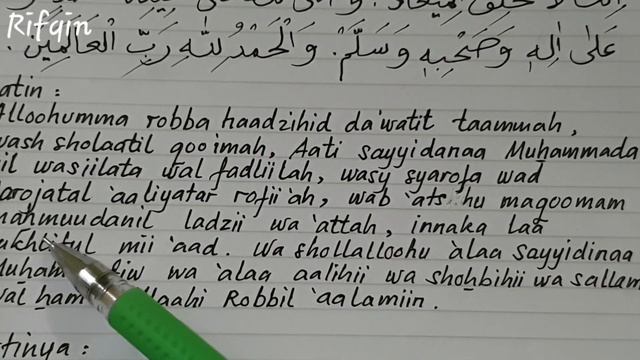 Rifqin
عَلَى اٰلِهٖ وَصَحْبِهٖ وَسَلَّمَ. وَالْحَمْدُ لِلّٰهِ رَبِّ الْعَالَمِيْنَ.
atin :
Alloohumma robba haadzihid da'watit taammah,
wash sholaatil qooimah, Aati sayyidanaa Muhammada
nil wasiilata wal fadliilah, wasy syarofa wad
darojatal 'aaliyatar rofii'ah, wab 'ats hu maqoomam
mahmuudanil ladzii wa 'attah, innaka laa
tukhliful mii 'aad. Wa shollalloohu 'alaa sayyidinaa
wa 'alaa aalihii wa shohbihii wa sallam
wal Robbil 'aalamiin.
tinya :